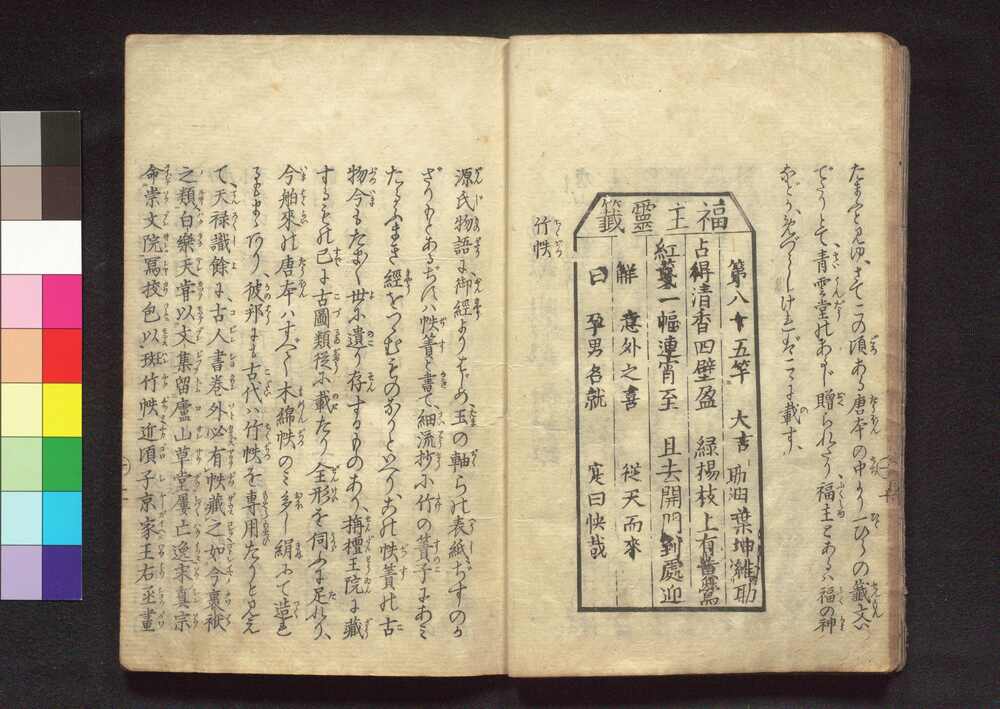 たまふと見ゆ、さてこの頃ある唐本の中より一ひらの籤文い
でたりとて、青雲堂のあるじ贈られたり福主とあるハ福の神
などか、めづらしけれバこゝに載す、
福主靈籤
第八十五竿 大吉
占得清香四壁盈 緑楊枝上有黄鶯
紅鸞一幅連宵至 且去開門到處迎
解 意外之喜 從天而來
曰 孕男名就 寔曰快哉
竹帙
源氏物語に御經よりはじめ玉の軸らの表紙ちすのか
ざりもとあるぢすハ帙簀と書て、細流抄に竹の簀子にあみ
たるふまき經をつゝむものなりといへりこの帙簀の古
物今もたま〳〵世に遺り存するものあり、栴檀王院に藏
するもの已に古圖類從に載たり全形を伺ふに足れり、
今舶來の唐本ハすべて木綿帙のミ多し絹にて造れ
るもまゝあり、彼邦にも古代ハ竹帙を專用たりと見え
て、天禄識餘に、古人書卷外必有帙藏之如今裹袱
之類白樂天嘗以文集留廬山草堂屢亡逸宋真宗
命崇文院冩挍包以斑竹帙近頃子京家王右丞畫